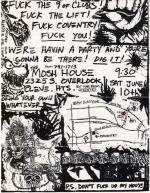 FUCK THE 9 OF CLUBS
FUCK THE LIFT!
FUCK COVENTRY
FUCK YOU!
WE'RE HAVIN A PARTY AND YOUR
GONNA BE THERE! DIG IT!
MOSH HOUSE
9:30
2325 S. OVERLOOK
SAT JUNE
CLEVE. HTS.
10TH
BRING YOUR OWN
WHATEVER
COVENTRY
P.S. DON'T FUCK UP MY HOUSE